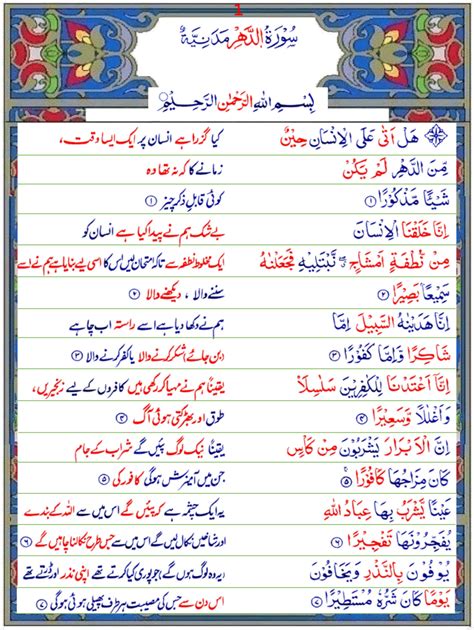 1
سُوْرَةُ الدَّهْرِ مَدَنِيَّةٌ
بِسْمِ اللهِ الرَّحْمٰنِ الرَّحِيْمِ
هَلْ اَتٰى عَلَى الْاِنْسَانِ حِيْنٌ کیا گزرا ہے انسان پر ایک ایسا وقت،
مِّنَ الدَّهْرِ لَمْ يَكُنْ زمانے کا کہ نہ تھا وہ
شَيْئًا مَّذْكُوْرًا ① کوئی قابلِ ذکر چیز ①
اِنَّا خَلَقْنَا الْاِنْسَانَ بے شک ہم نے پیدا کیا ہے انسان کو
مِنْ نُّطْفَةٍ اَمْشَاجٍ نَّبْتَلِيْهِ فَجَعَلْنٰهُ ایک مخلوط نطفہ سے تاکہ امتحان لیں اس کا اسی لیے بنایا ہے ہم نے اسے
سَمِيْعًا بَصِيْرًا ② سننے والا ، دیکھنے والا ②
اِنَّا هَدَيْنٰهُ السَّبِيْلَ اِمَّا ہم نے دکھا دیا ہے اسے راستہ اب چاہے
شَاكِرًا وَّاِمَّا كَفُوْرًا ③ بن جائے شکر کرنے والا یا کفر کرنے والا ③
اِنَّآ اَعْتَدْنَا لِلْكٰفِرِيْنَ سَلٰسِلَا۟ یقیناً ہم نے مہیا کر رکھی ہیں کافروں کے لیے زنجیریں،
وَاَغْلٰلًا وَّسَعِيْرًا ④ طوق اور بھڑکتی ہوئی آگ ④
اِنَّ الْاَبْرَارَ يَشْرَبُوْنَ مِنْ كَاْسٍ یقیناً نیک لوگ پئیں گے شراب کے جام
كَانَ مِزَاجُهَا كَافُوْرًا ⑤ جن میں آمیزش ہوگی کافور کی ⑤
عَيْنًا يَّشْرَبُ بِهَا عِبَادُ اللهِ یہ ایک چشمہ ہے کہ پئیں گے اس میں سے اللہ کے بندے
يُفَجِّرُوْنَهَا تَفْجِيْرًا ⑥ اور شاخیں نکال لیں گے اس میں سے جس طرح نکالنا چاہیں گے ⑥
يُوْفُوْنَ بِالنَّذْرِ وَيَخَافُوْنَ یہ وہ لوگ ہوں گے جو پوری کیا کرتے تھے اپنی نذر اور ڈرتے تھے
يَوْمًا كَانَ شَرُّهٗ مُسْتَطِيْرًا ⑦ اس دن سے جس کی مصیبت ہر طرف پھیلی ہوئی ہوگی ⑦